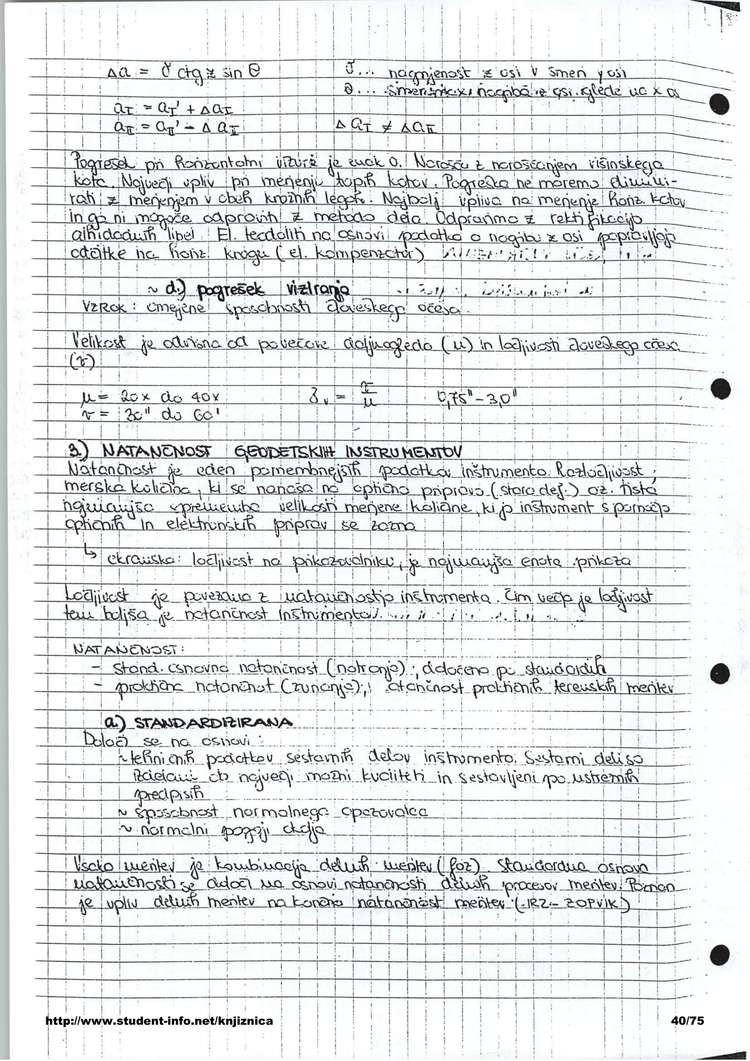 Δa = δ ctg z sin θ    δ... nagnjenost z osi v smeri y osi
θ ... smerni nagiba z osi glede na x os
a_I = a_I' + Δa_I
a_II = a_II' - Δa_II    Δa_I ≠ Δa_II
Pogrešek pri horizontalni vizuri je enak 0. Narašča z naraščanjem višinskega
kota. Največji vpliv pri merjenju topih kotov. Pogreška ne moremo elimini-
rati z merjenjem v obeh krožnih legah. Najbolj vpliva na merjenje horiz. kotov
in ga ni mogoče odpraviti z metodo dela. Odpravimo z rektifikacijo
alhidadnih libel. El. teodoliti na osnovi podatka o nagibu z osi popravljajo
odčitke na horiz. krogu (el. kompenzator)
~ d.) pogrešek viziranja
VZROK: omejene sposobnosti človeškega očesa.
Velikost je odvisna od povečave daljnogleda (u) in ločljivosti človeškega očesa
(r)
u = 20x do 40x    δᵥ = r/u    0,75" - 3,0"
r = 30" do 60"
3) NATANČNOST GEODETSKIH INSTRUMENTOV
Natančnost je eden pomembnejših podatkov inštrumenta. Razločljivost;
merska količina, ki se nanaša na optično pripravo (stara def.) oz. tista
najmanjša sprememba velikosti merjene količine, ki jo inštrument s pomočjo
optičnih in elektronskih priprav še zazna
↳ ekranska: ločljivost na prikazovalniku, je najmanjša enota prikaza
Ločljivost je povezana z natančnostjo inštrumenta. Čim večja je ločljivost
tem boljša je natančnost inštrumenta.
NATANČNOST:
- stand. osnovna natančnost (notranja); določena po standardih
- praktična natančnost (zunanja); natančnost praktičnih terenskih meritev
a.) STANDARDIZIRANA
Določi se na osnovi:
~ tehničnih podatkov sestavnih delov inštrumenta. Sestavni deli so
izdelani ob največji možni kvaliteti in sestavljeni po ustreznih
predpisih
~ sposobnost normalnega opazovalca
~ normalni pogoji okolja
Vsaka meritev je kombinacija delnih meritev (faz). Standardna osnovna
natančnosti se določi na osnovi natančnosti delnih procesov meritev. Poznan
je vpliv delnih meritev na končno natančnost meritev (-IRZ- ZOPVIK)
http://www.student-info.net/knjiznica    40/75